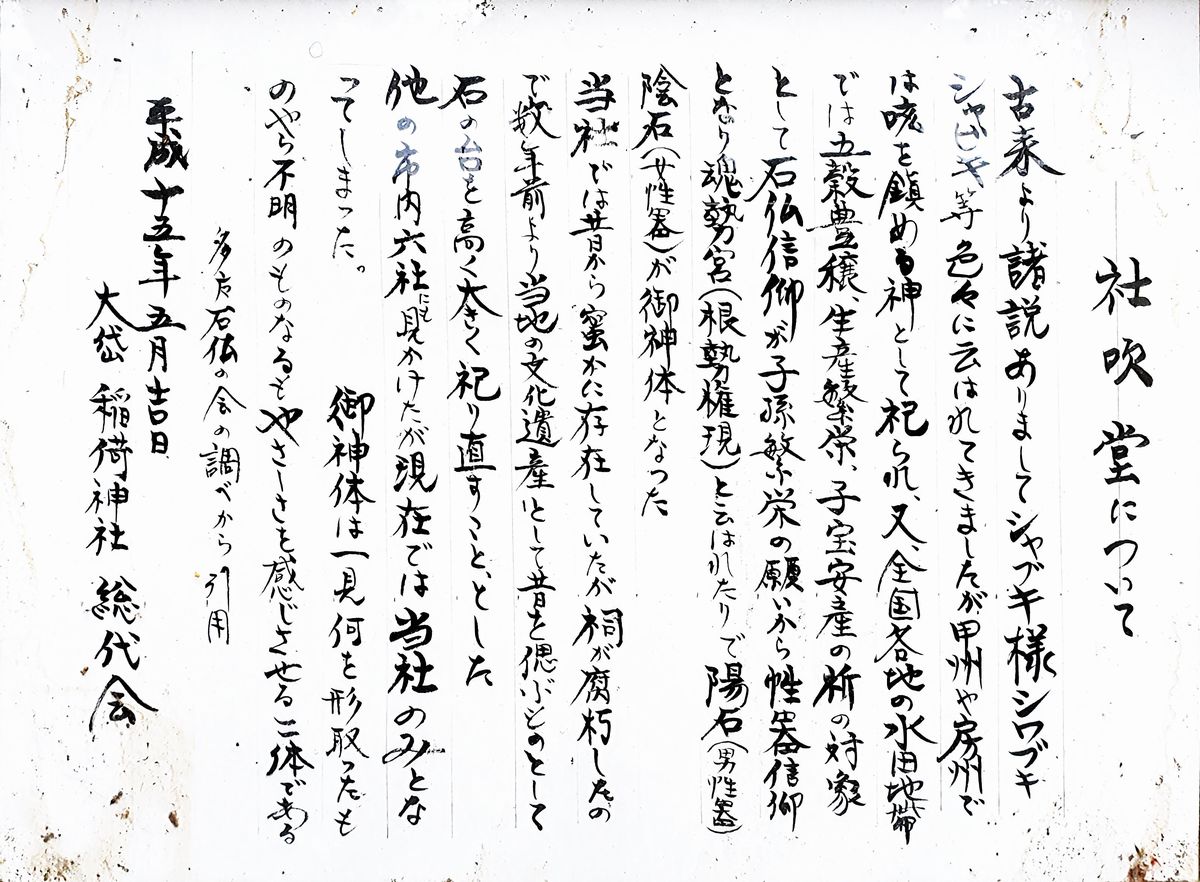 社吹堂について
古来より諸説ありましてシャブキ様シワブキ
シャビキ等色々に云はれてきましたが甲州や房州で
は咳を鎮める神として祀られ、又、全国各地の水田地帯
では五穀豊穣、生産繁栄、子宝安産の祈の対象
として石仏信仰が子孫繁栄の願いから性器信仰
となり魂勢宮(根勢権現)と云はれたりで陽石(男性器)
陰石(女性器)が御神体となった
当社では昔から蜜かに存在していたが祠が腐朽したの
で数年前より当地の文化遺産として昔を偲ぶものとして
石の台を高く大きく祀り直すこと、とした
他の市内六社にも見かけたが現在では当社のみとな
ってしまった。 御神体は一見何を形取ったも
のやら不明のものなるもやさしさを感じさせる二体である
多摩石仏の会の調べから引用
平成十五年五月吉日
大岱稲荷神社 総代会